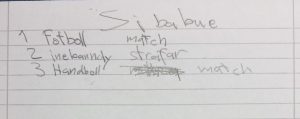 Sibabue
1 Fotboll match
2 inebanndy strafar
3 Handboll match